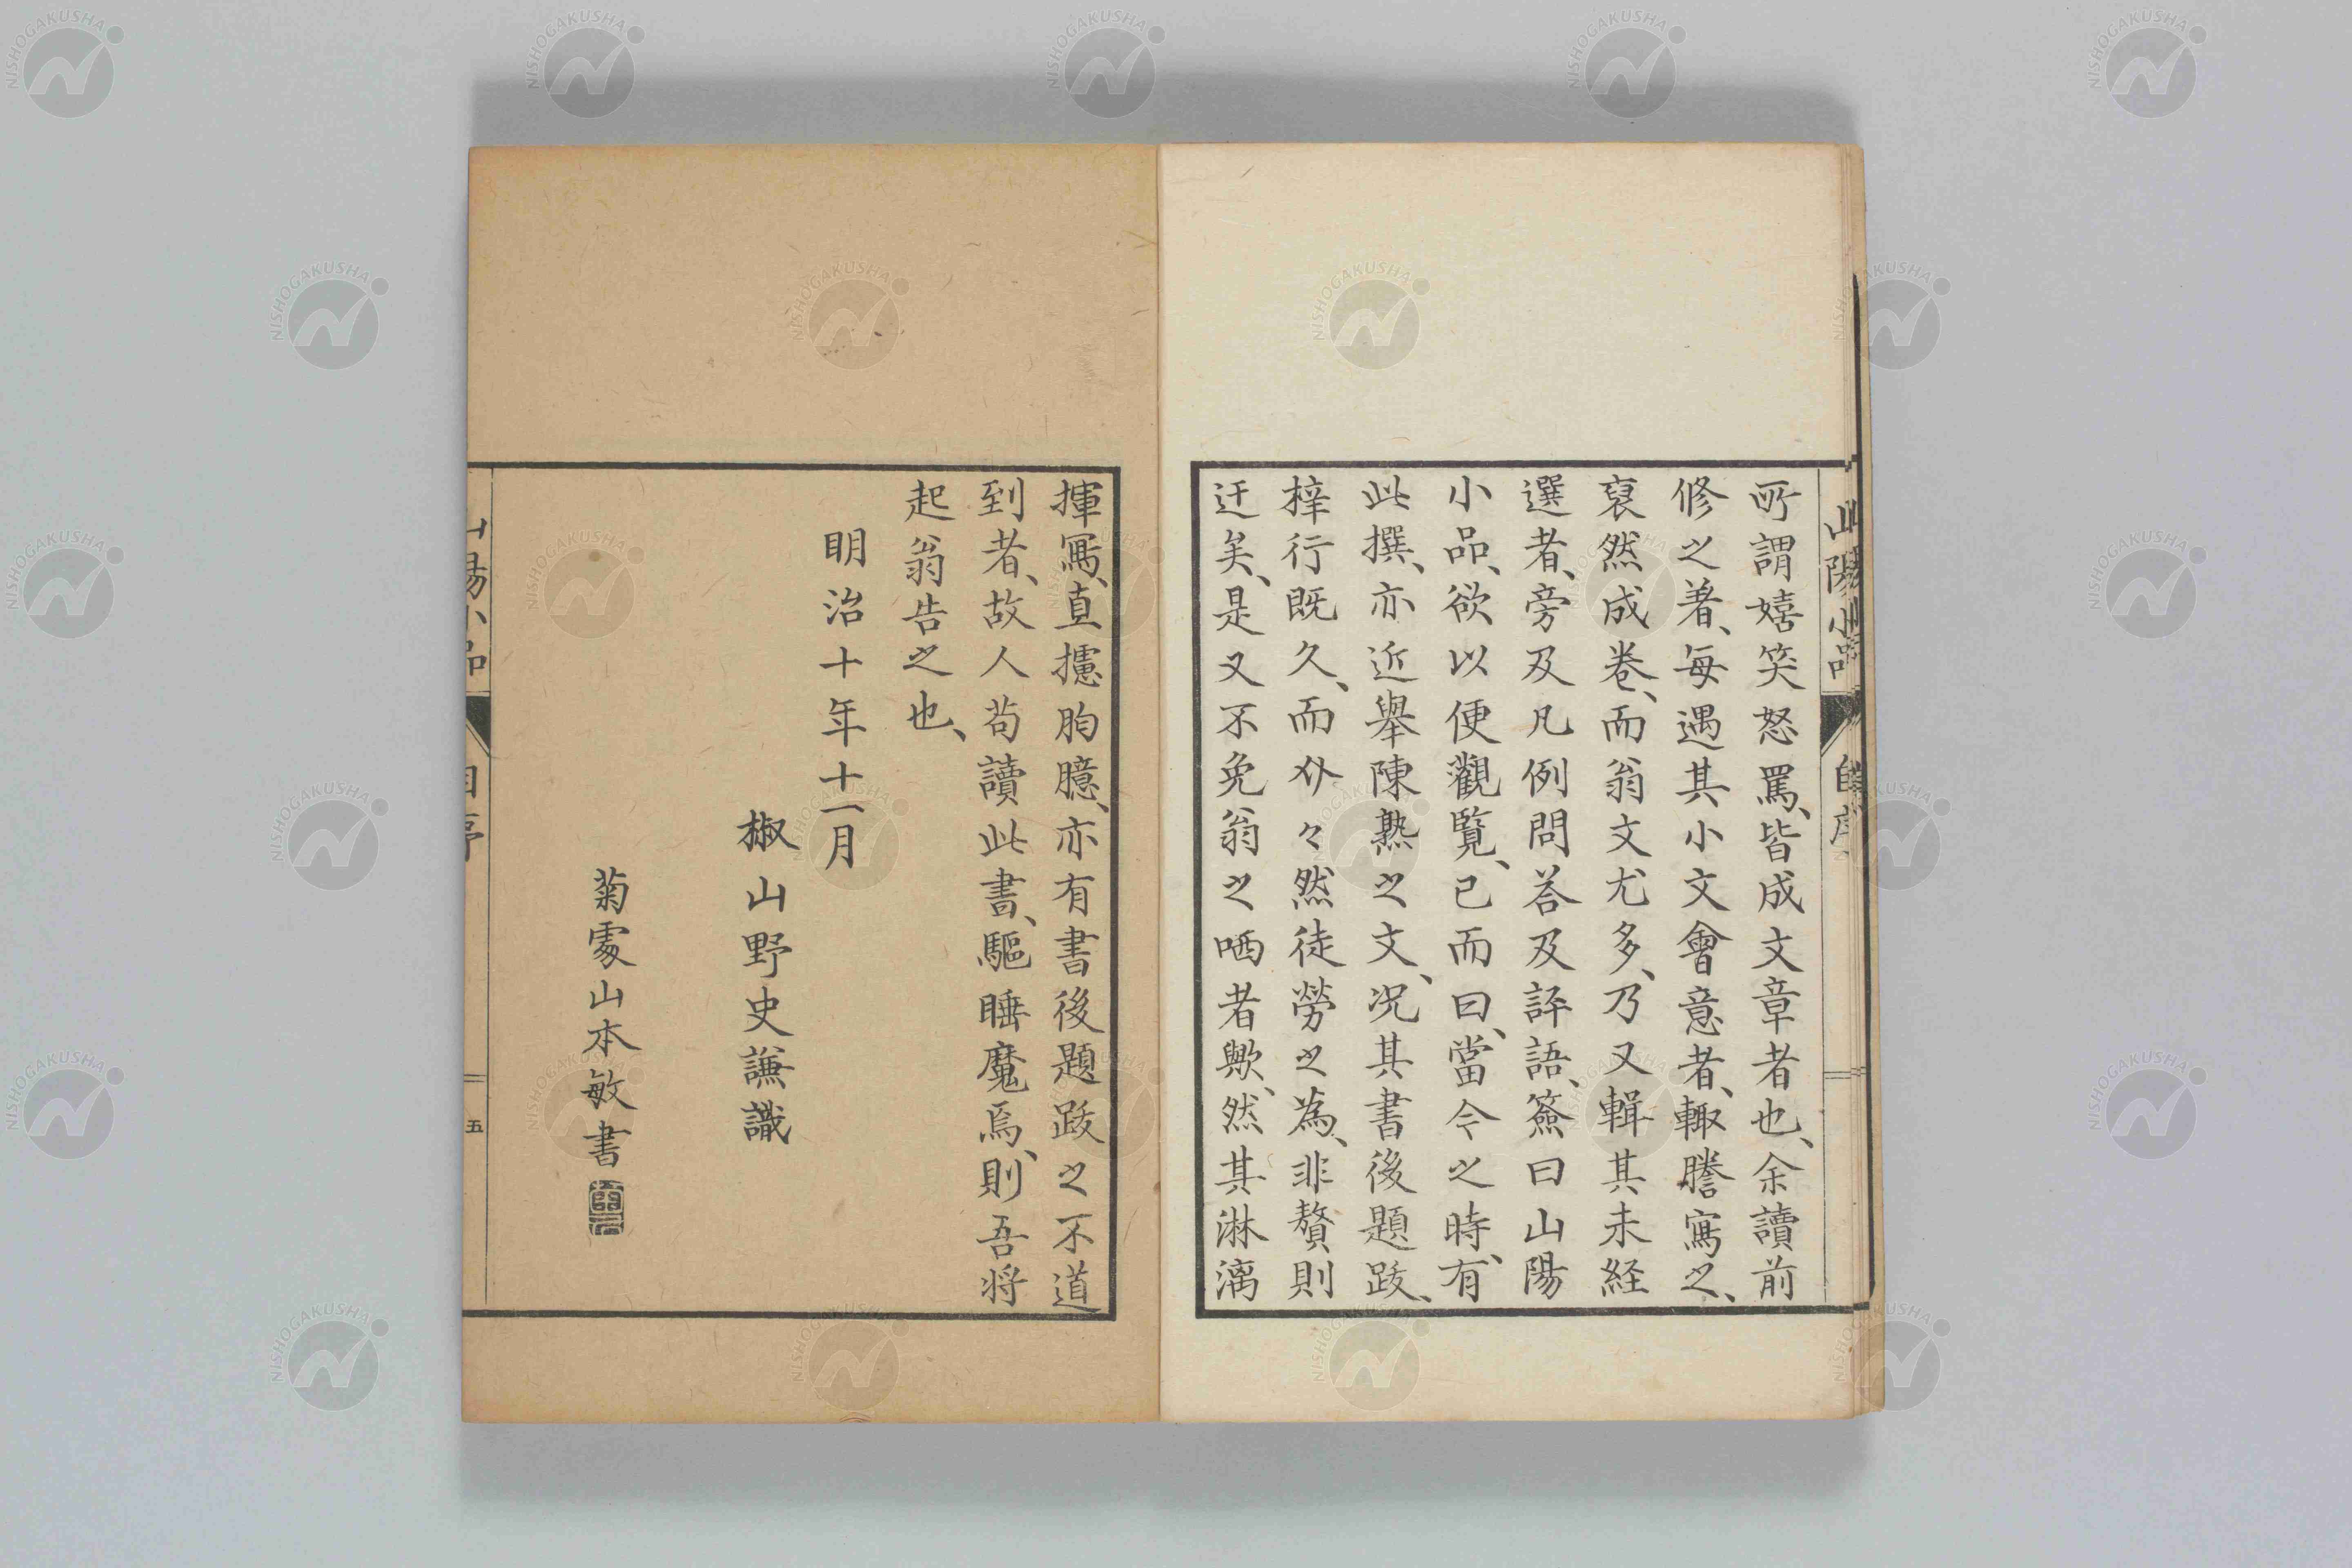 山陽小品
自序
所謂嬉笑怒罵、皆成文章者也、余讀前
修之著、每遇其小文會意者、輙謄寫之、
裒然成卷、而翁文尤多、乃又輯其未経
選者、旁及凡例問荅及評語、簽曰山陽
小品、欲以便觀覽、已而曰、當今之時、有
此撰、亦近舉陳熟之文、况其書後題跋、
梓行既久、而尒々然徒勞之為、非贅則
迂矣、是又不免翁之哂者歟、然其淋漓
揮寫、直攄胸臆、亦有書後題跋之不道
到者、故人苟讀此書、驅睡魔焉、則吾将
起翁告之也、
明治十年十一月
椒山野史謙識
菊處山本敏書
山陽小品
自序
五
NISHOGAKUSHA